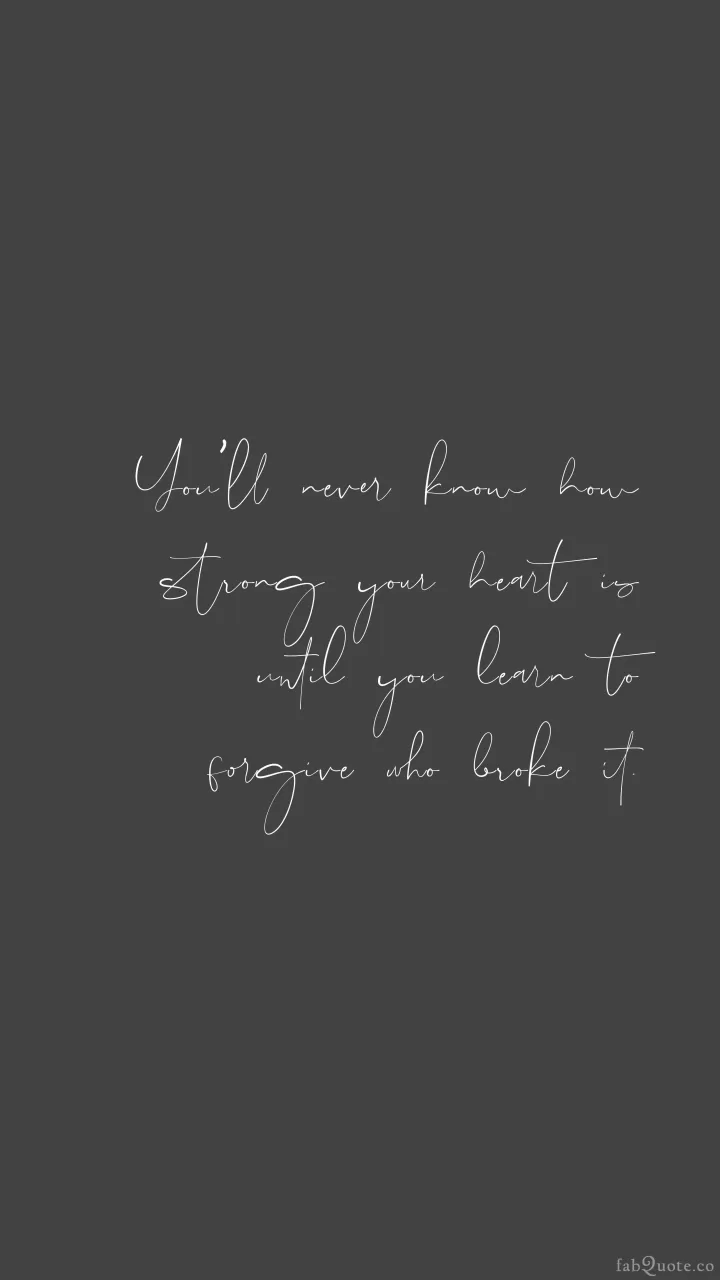 You'll never know how
strong your heart is
until you learn to
forgive who broke it.
fabQuote.co